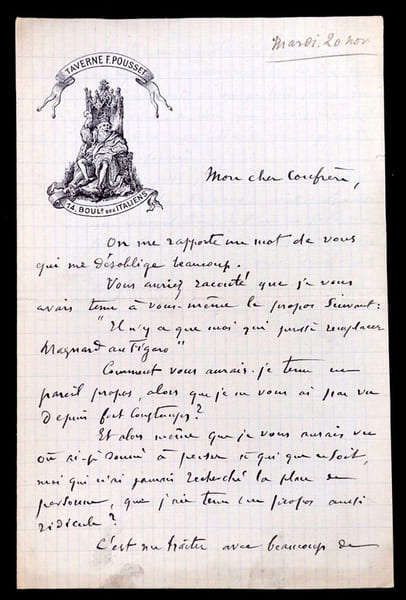 Mardi. 20 nov
TAVERNE F. POUSSET
14, BOULD DES ITALIENS
Mon cher Confrère,
On me rapporte un mot de vous
qui me désoblige beaucoup.
Vous auriez raconté que je vous
avais tenu à vous-même le propos suivant:
"Il n'y a que moi qui puisse remplacer
Magnard au Figaro"
Comment vous aurais-je tenu un
pareil propos, alors que je ne vous ai pas vu
depuis fort longtemps?
Et alors même que je vous aurais vu
où ai-je donné à penser à qui que ce soit,
moi qui n'ai jamais recherché la place de
personne, que j'aie tenu un propos aussi
ridicule?
C'est me traiter avec beaucoup de